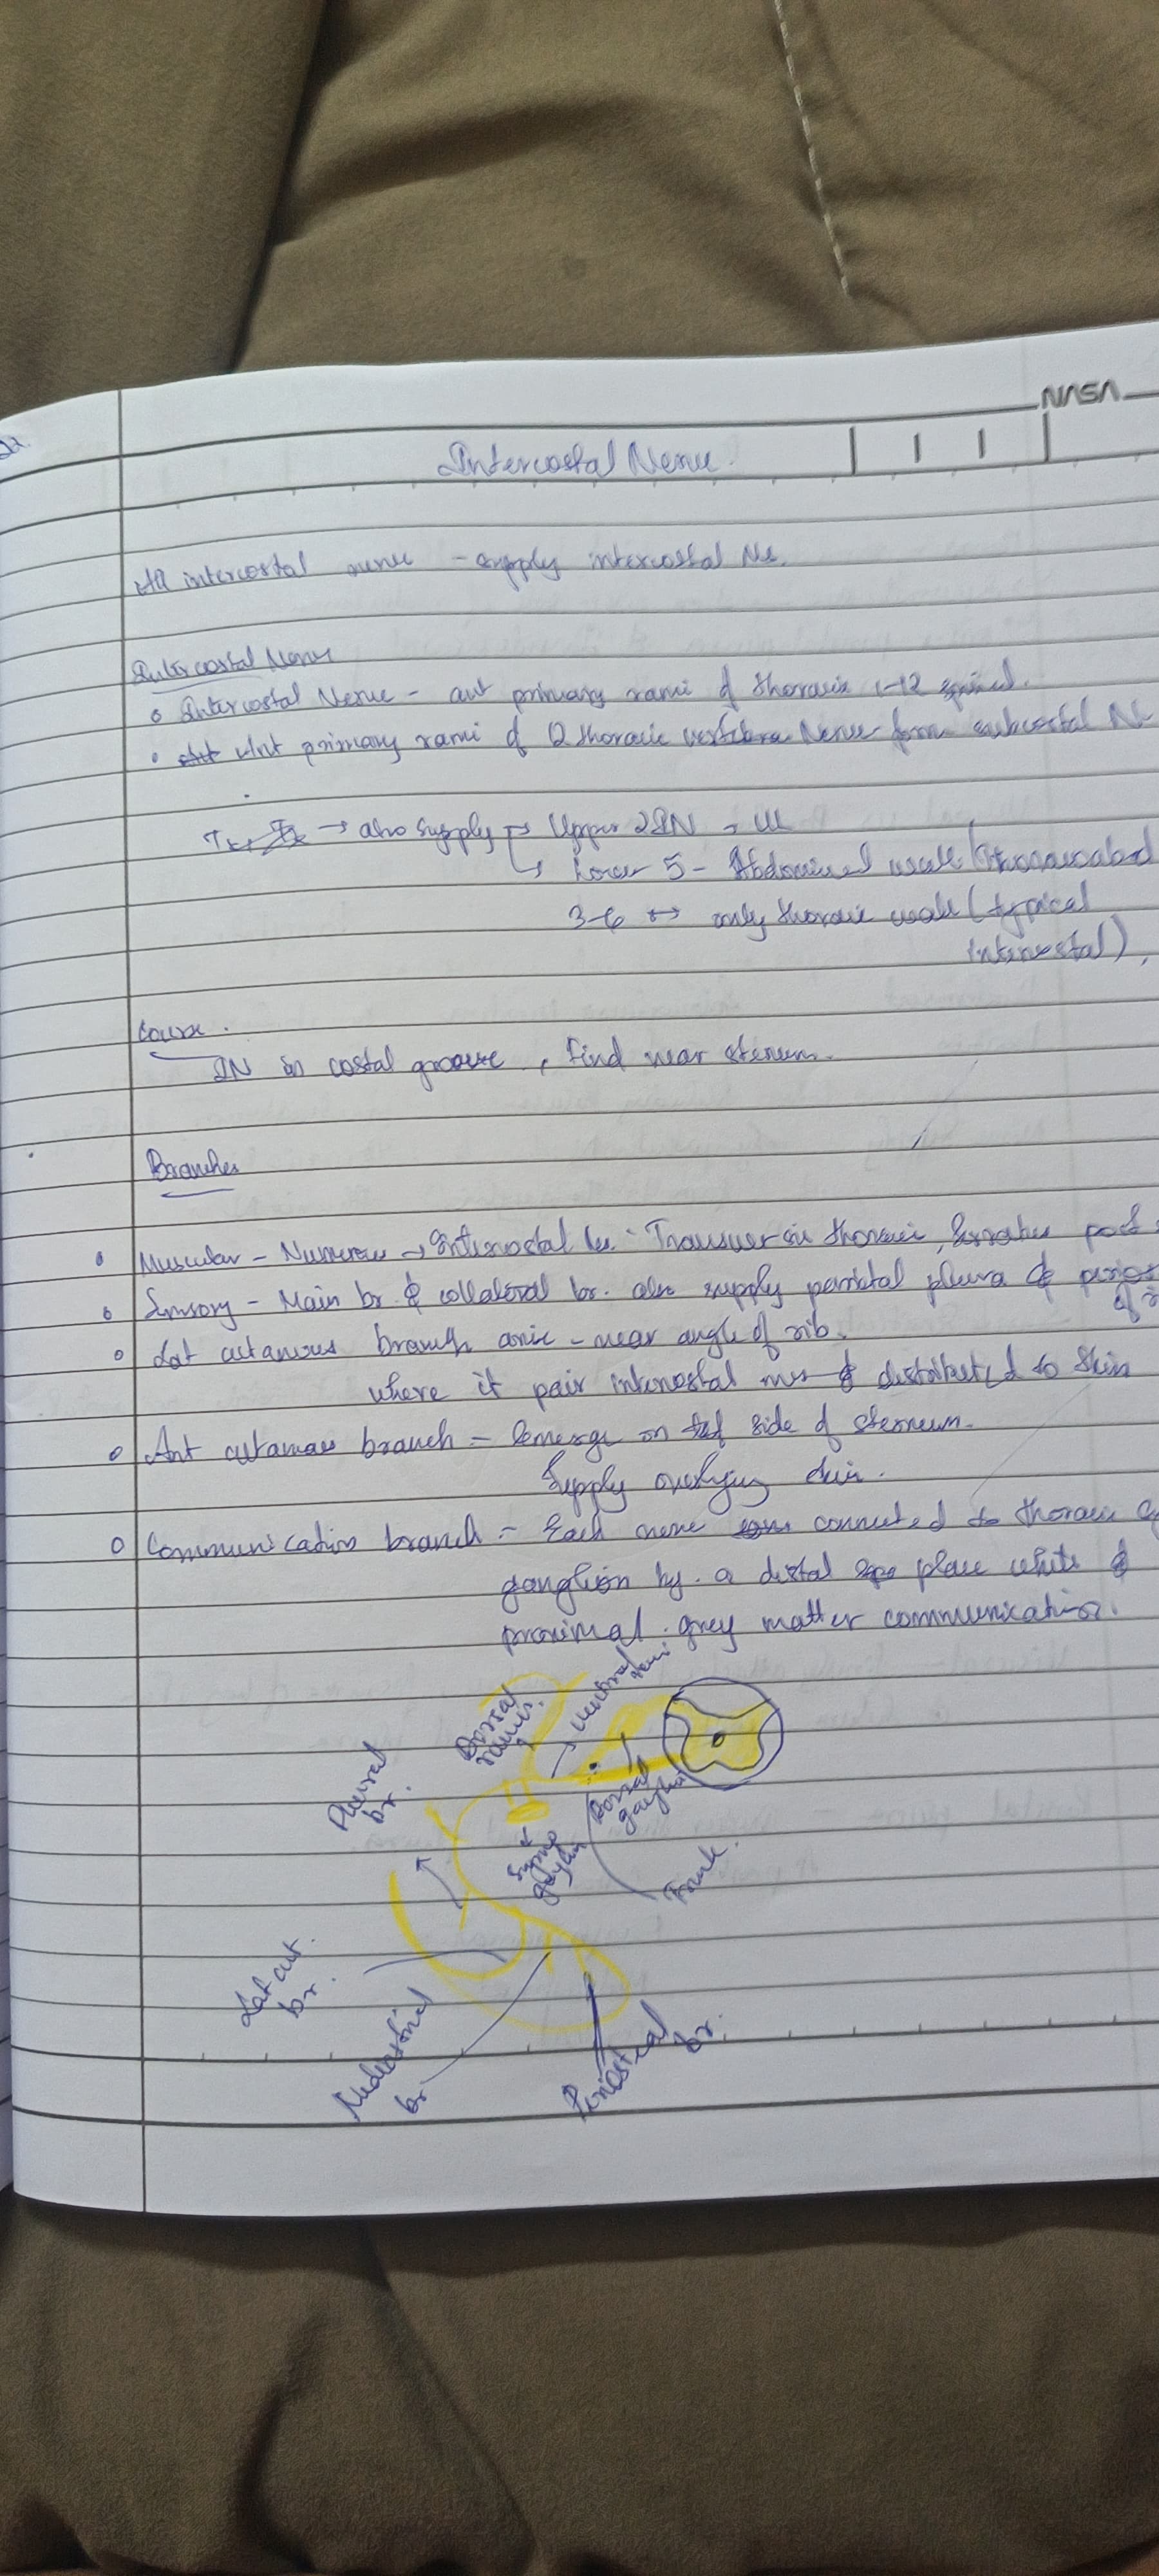 NASA
Intercostal Nerve.
All intercostal nerve - supply intercostal Ms.
Intercostal Nerve
Intercostal Nerve - ant primary rami of thoracic 1-12 spinal.
Ant primary rami of 12 thoracic vertebra Nerve form subcostal N
→ also supply → Upper 2 IN → UL
↳ Lower 5 - Abdominal wall (thoracoabd
3-6 ↔ only thoracic wall (typical
intercostal),
Course.
IN in costal groove, find near sternum.
Branches
Muscular - Numerous → Intercostal Ms. thoracic, Serratus post
Sensory - Main br. & collateral br. also supply parietal pleura &
of
Lat cutaneous branch - near angle of rib.
where it intercostal & distributed to skin
Ant cutaneous branch - emerge on side of sternum.
Supply overlying skin.
Communication branch - Each nerve connected to thoracic
ganglion by a distal place white &
proximal grey matter communication.
Ventral rami
Dorsal ramus.
Pleural br.
Dorsal ganglion
Symp ganglion
Trunk.
Lat cut. br.
Mediastinal br
Periosteal br.